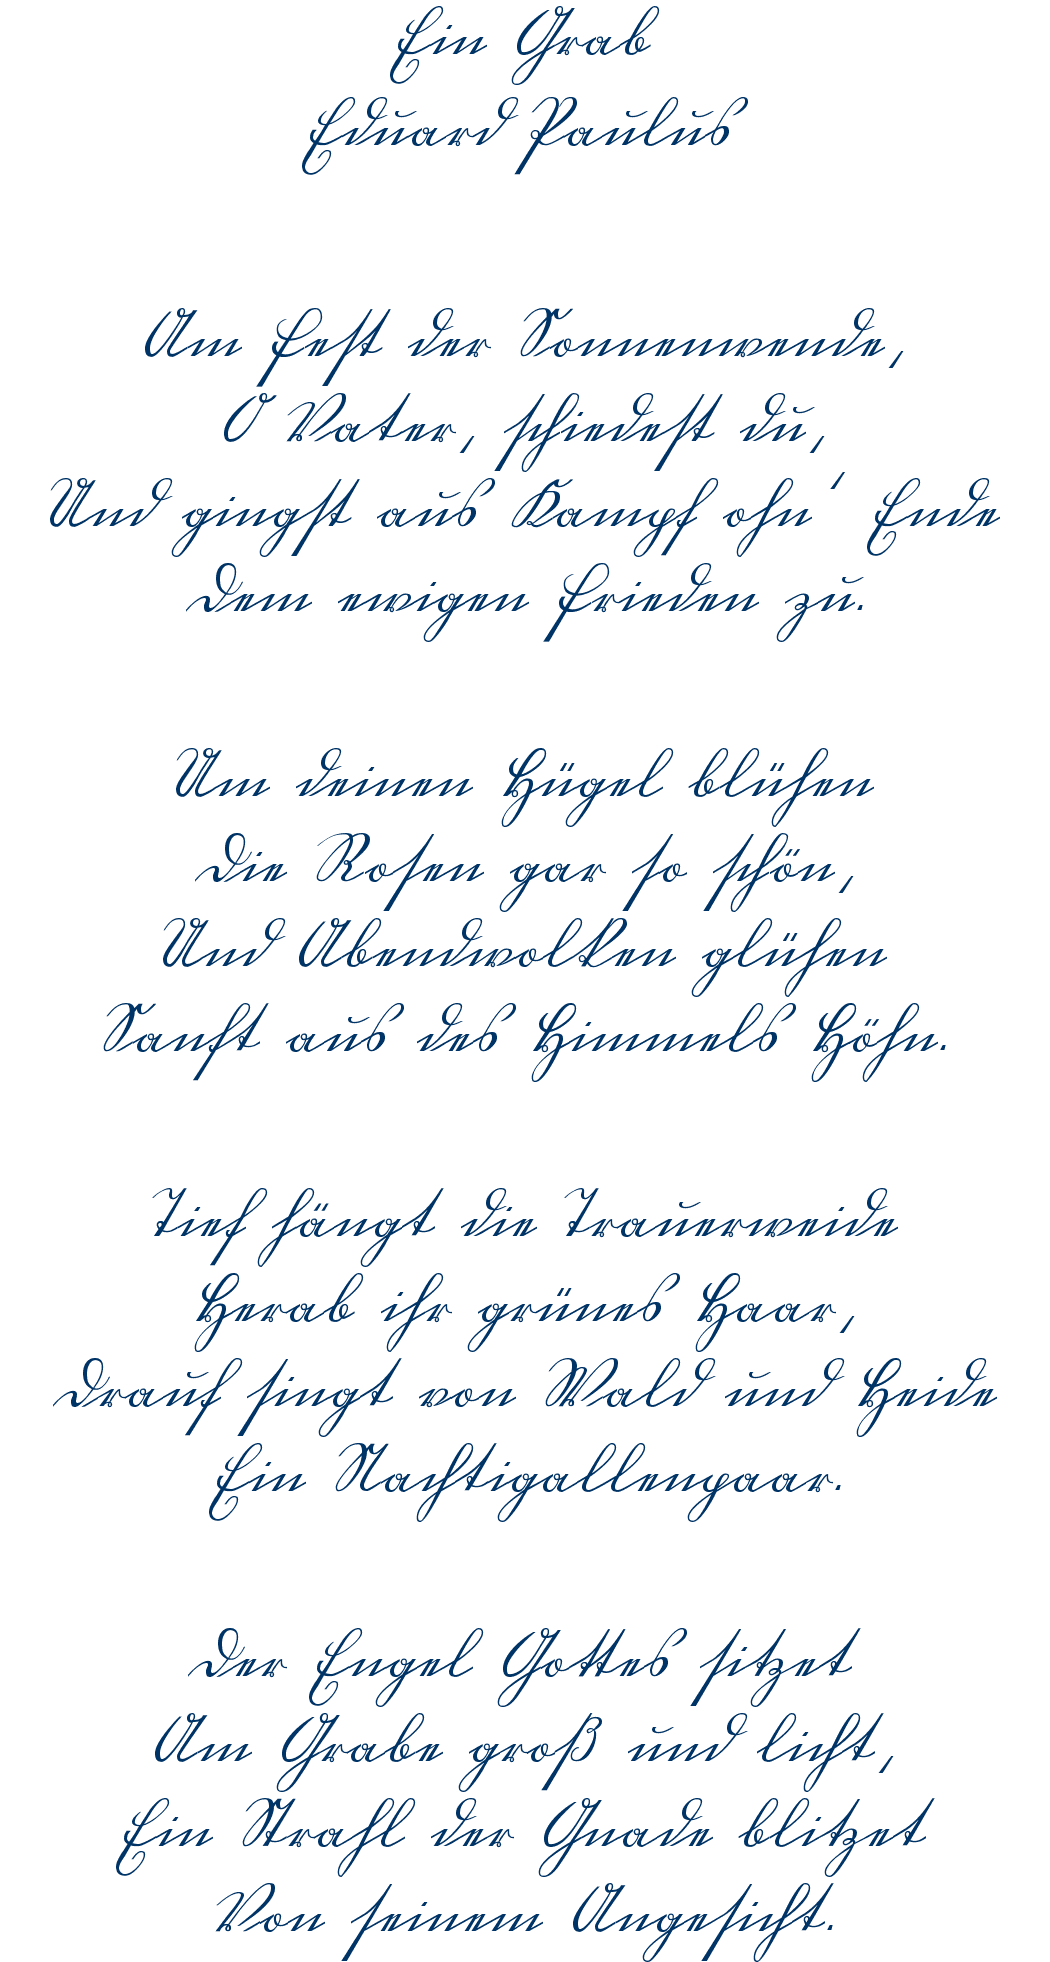 Ein Grab
Eduard Paulus
Am Fest der Sonnenwende,
O Vater, schiedest du,
Und gingst aus Kampf ohn' Ende
Dem ewigen Frieden zu.
Um deinen Hügel blühen
Die Rosen gar so schön,
Und Abendwolken glühen
Sanft aus des Himmels Höhn.
Tief hängt die Trauerweide
Herab ihr grünes Haar,
Drauf singt von Wald und Heide
Ein Nachtigallenpaar.
Der Engel Gottes sitzet
Am Grabe groß und licht,
Ein Strahl der Gnade blitzet
Von seinem Angesicht.